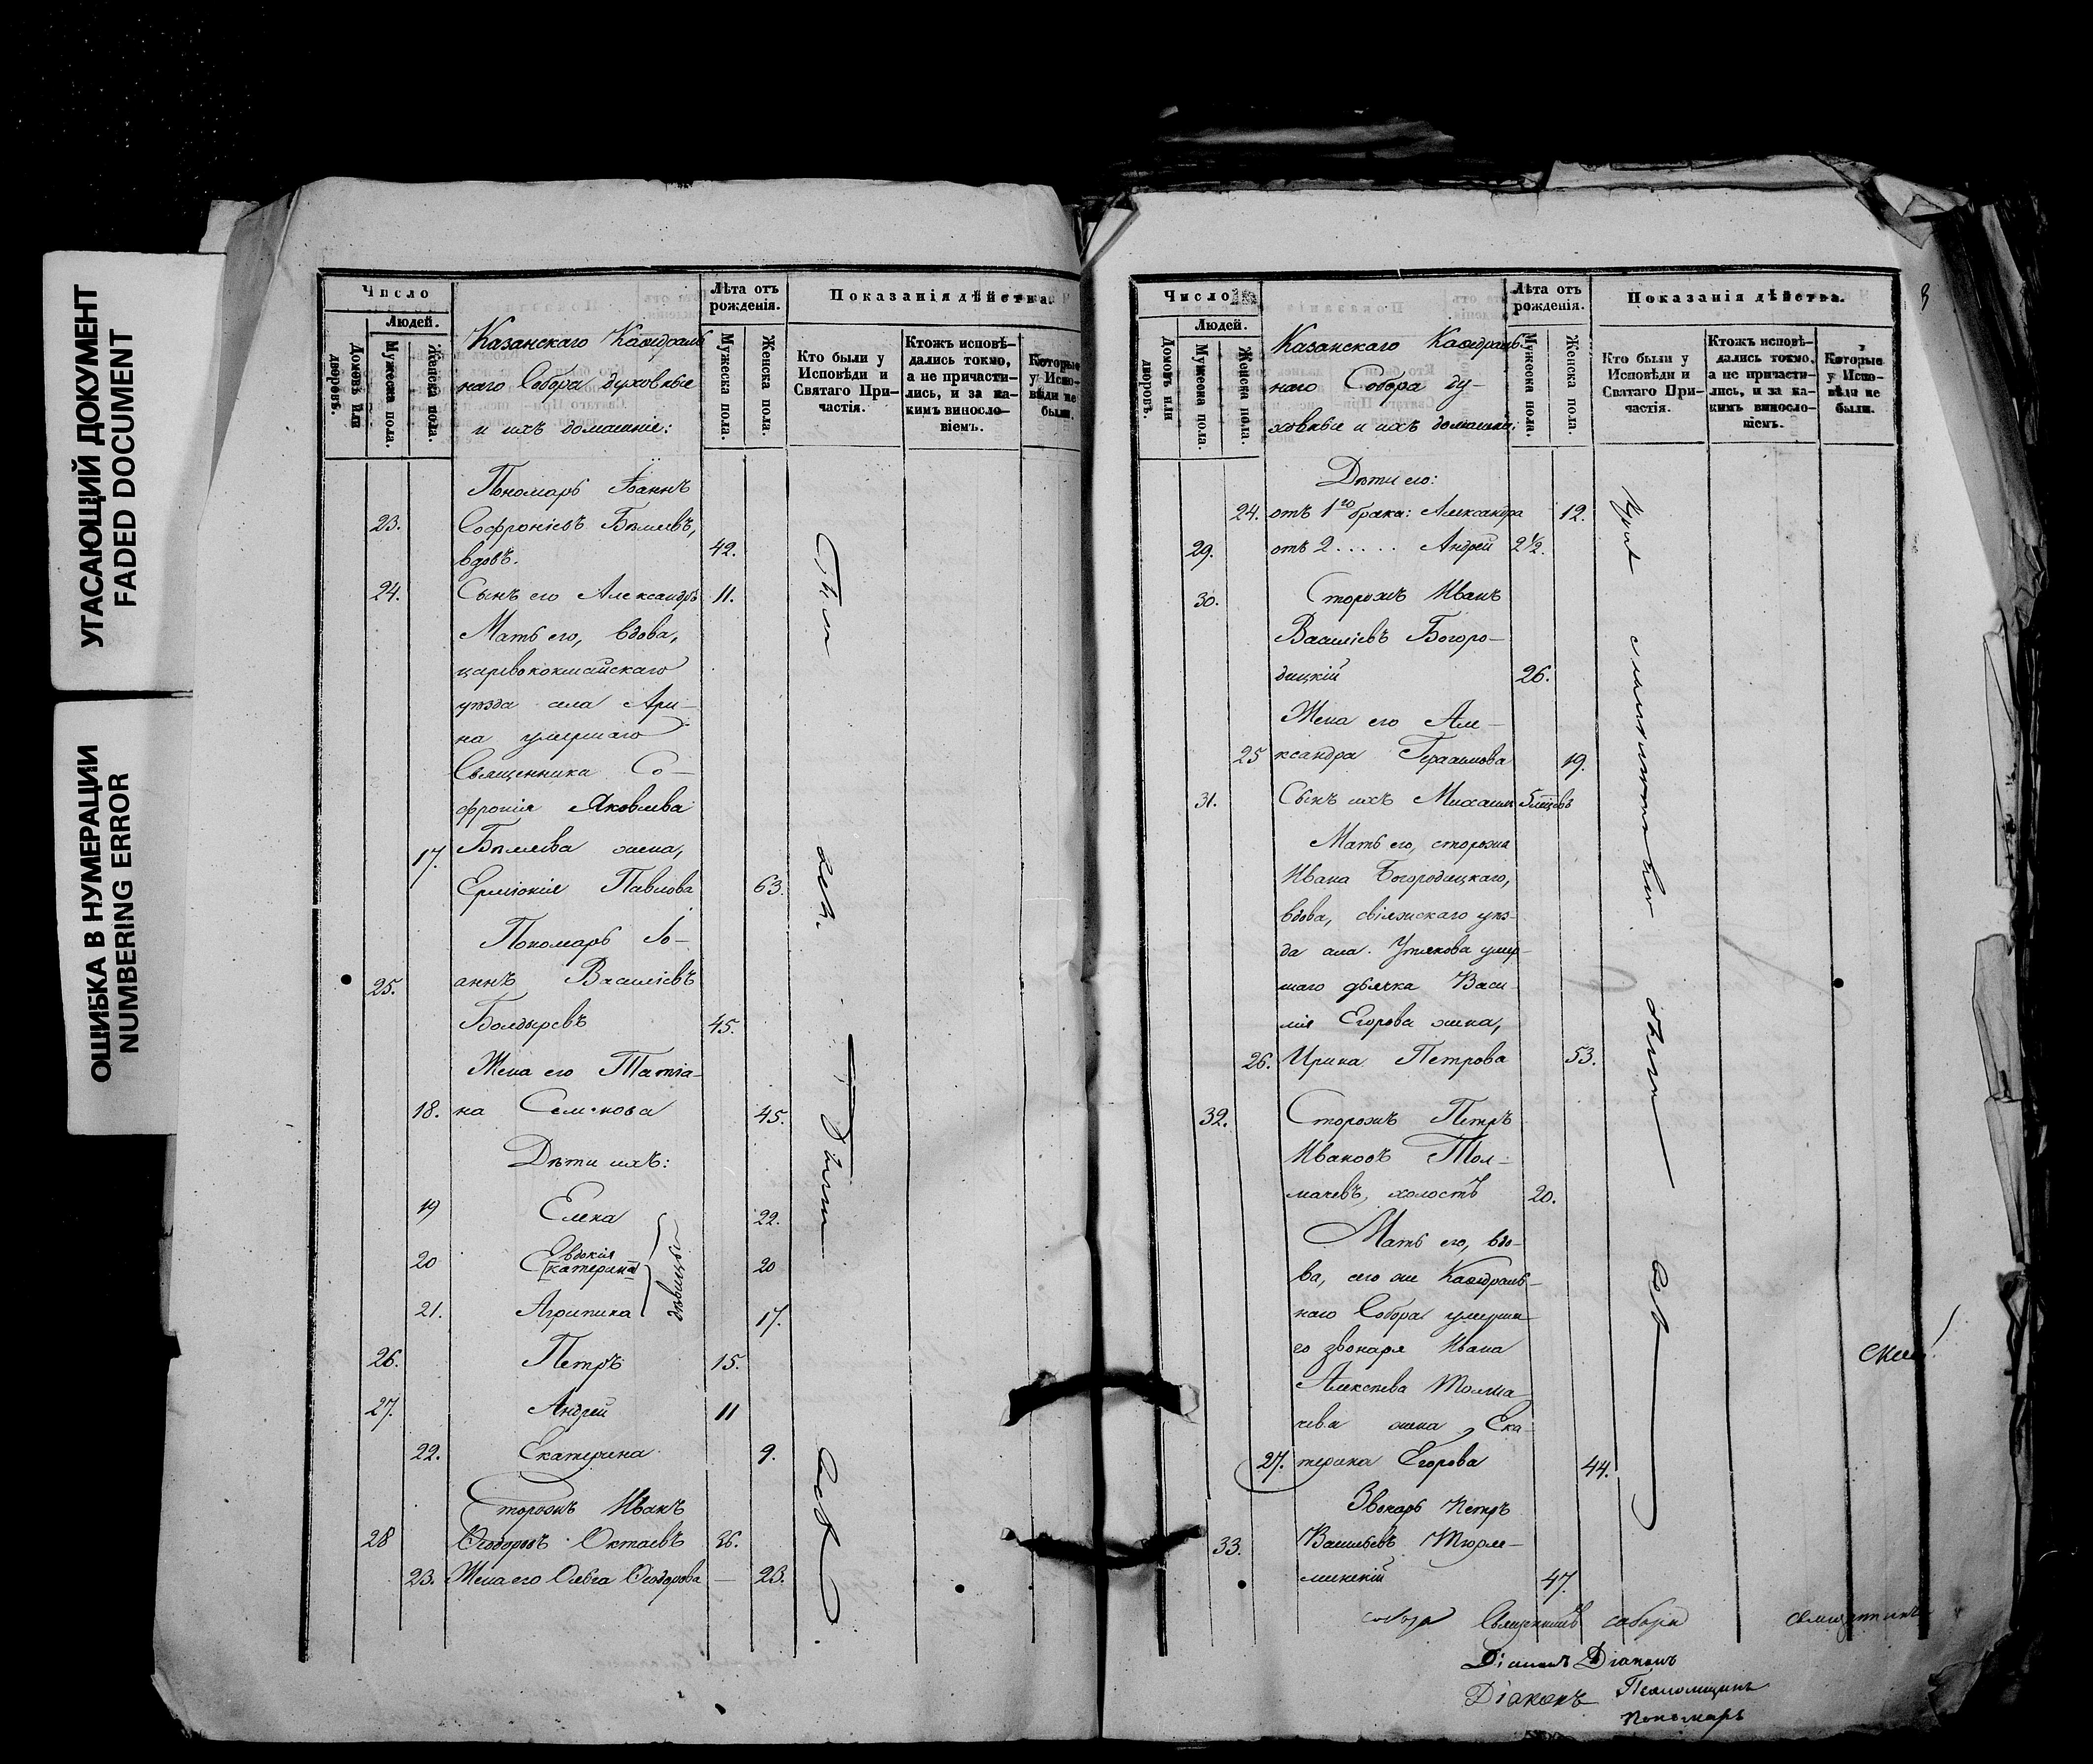 УГАСАЮЩИЙ ДОКУМЕНТ
FADED DOCUMENT
ОШИБКА В НУМЕРАЦИИ
NUMBERING ERROR
Число
Людей.
Домовъ или дворовъ.
Мужеска пола.
Женска пола.
Казанскаго Каѳедраль
наго Собора духовные
и ихъ домашніе:
Лѣта отъ рожденія.
Мужеска пола.
Женска пола.
Показанія дѣйства.
Кто были у Исповѣди и Святаго При-
частія.
Ктожъ исповѣ-
дались токмо,
а не причасти-
лись, и за ка-
кимъ виносло-
віемъ.
Которые
у Испо-
вѣди не
были.
Пономарь Іоаннъ
23. Софроніевъ Бѣляевъ,
вдовъ. 42.
24. Сынъ его Александръ 11.
Мать его, вдова,
царевококшайскаго
уѣзда села Ари-
на умершаго
Священника Со-
фронія Яковлева
17. Бѣляева жена,
Ерміонія Павлова 63.
Пономарь Іо-
25. аннъ Василіевъ
Болдыревъ 45.
Жена его Татіа-
18. на Семенова 45.
Дѣти ихъ:
19 Елена 22.
20 Евдокія
Екатерина 20
21. Агрипина 17.
дѣвицы
26. Петръ 15.
27. Андрей 11
22. Екатерина 9.
Сторожъ Иванъ
28 Ѳеодоровъ Октаевъ 36.
23. Жена его Ольга Ѳеодорова — 23.
были
3
Число
Людей.
Домовъ или дворовъ.
Мужеска пола.
Женска пола.
Казанскаго Каѳедраль-
наго Собора ду-
ховные и ихъ домашніе:
Лѣта отъ рожденія.
Мужеска пола.
Женска пола.
Показанія дѣйства.
Кто были у
Исповѣди и
Святаго При-
частія.
Ктожъ исповѣ-
дались токмо,
а не причасти-
лись, и за ка-
кимъ виносло-
віемъ.
Которые
у Испо-
вѣди не
были.
Дѣти его:
24. отъ 1го брака: Александра 12.
29. отъ 2..... Андрей 2½.
30. Сторожъ Иванъ
Василіевъ Богоро-
дицкій 26.
Жена его Але-
25 ксандра Герасимова 19.
31. Сынъ ихъ Михаилъ 5 мѣсяцевъ
Мать его, сторожа
Ивана Богородицкаго,
вдова, свіяжскаго уѣз-
да села Утякова умер-
шаго дьячка Васи-
лія Егорова жена,
26. Ирина Петрова 53.
32. Сторожъ Петръ
Ивановъ Тол-
мачевъ, холостъ 20.
Мать его, вдо-
ва, сего же Каѳедраль-
наго Собора умерша
го звонаря Ивана
Алексѣева Толма
чева жена, Ека-
27. терина Егорова 44.
Звонарь Петръ
33. Васильевъ Тюрле-
минскій 47.
были
собора Священникъ собора Священникъ
Діаконъ Діаконъ
Діаконъ Псаломщикъ
Пономарь